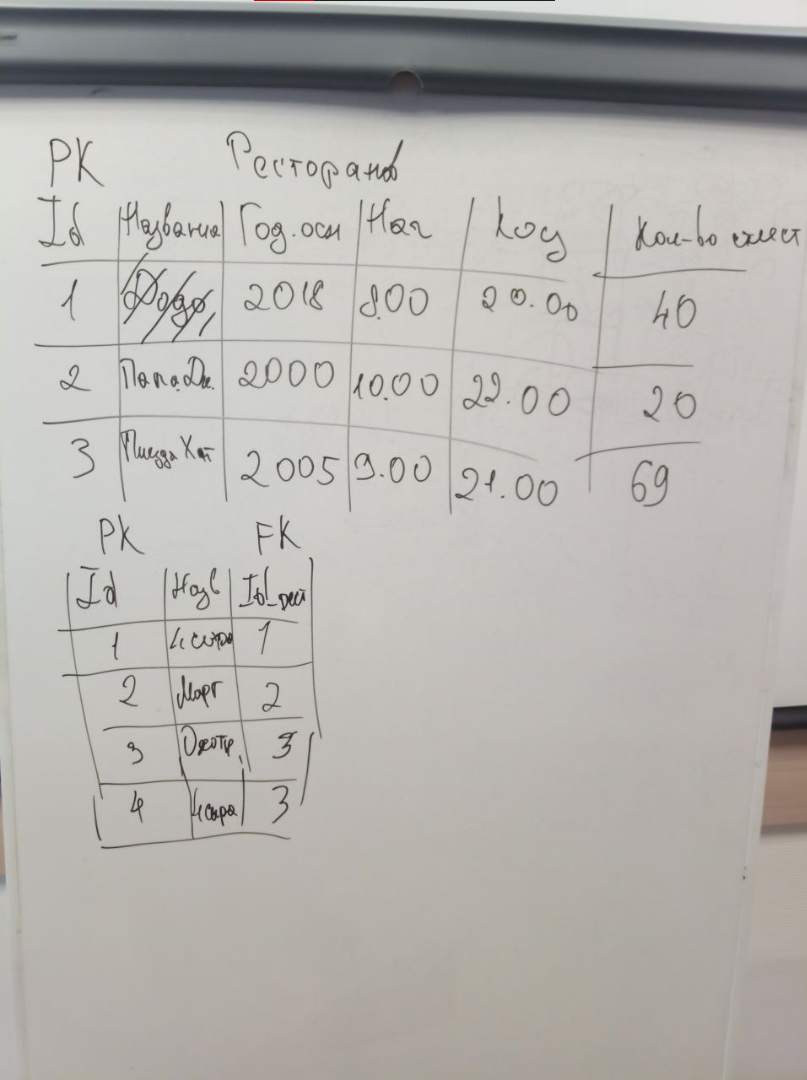 PK Ресторанов
Id Название Год.осн Нач Кон Кол-во мест
1 Додо 2018 8.00 20.00 40
2 Папа Дж. 2000 10.00 22.00 20
3 Пицца Хат 2005 9.00 21.00 69
PK FK
Id Назв Id_рест
1 4 сыра 1
2 Марг 2
3 3
4 4 сыра 3